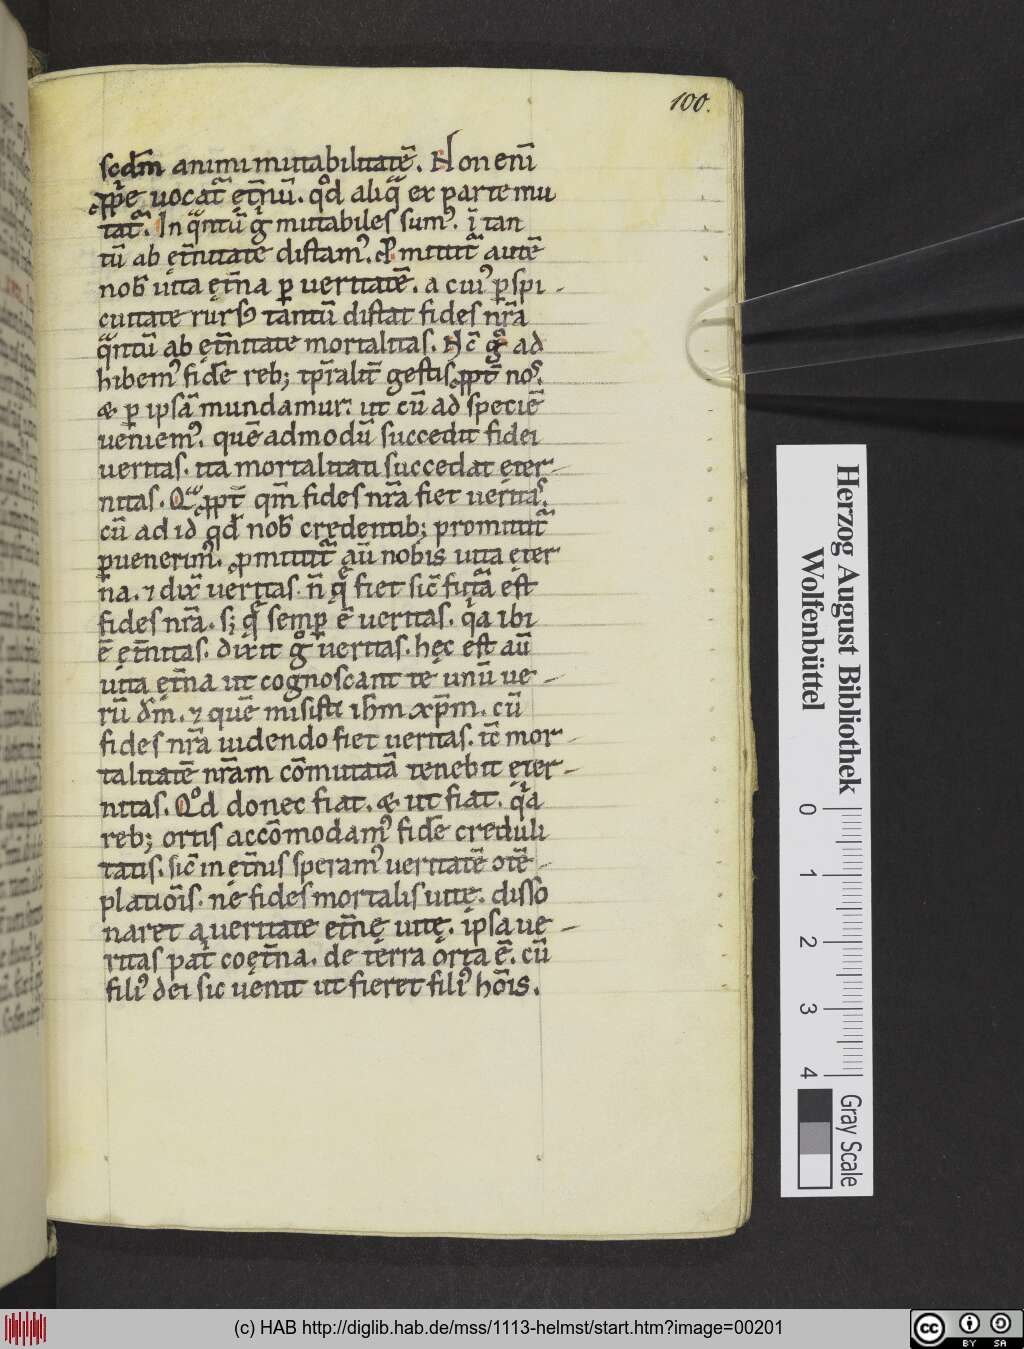 100.
scdm̄ animi mutabilitatē. Non enī
ꝓpͥe uocat᷑ ęt̄nū. qd̊ aliqͣ ex parte mu
tat᷑. In qͣntū gͦ mutabiles sumꝰ. ī tan
tū ab ęt̄nitate distamꝰ. Ꝓmittit᷑ autē
nob̄ uita ęt̄na ꝑ ueritatē. a cuiꝰ ꝑspi-
cuitate rursꝰ tantū distat fides nr̄a
qͣntū ab ęt̄nitate mortalitas. Nc̄ gͦ ad
hibemꝰ fidē reb; tp̄ralit̄ gestis ꝓpt̄ nos.
& ꝑ ipsā mundamur. ut cū ad speciē
ueniemꝰ. quēadmodū succedit fidei
ueritas. ita mortalitati succedat ęter-
nitas. Qͣ ꝓpt̄ qm̄ fides nr̄a fiet ueritas.
cū ad id qd̄ nob̄ credentib; promittit᷑
ꝑuenerimꝰ. ꝓmittit᷑ aū nobis uita ęter
na. ⁊ dix̄ ueritas. n̄ quę fiet sic̄ futͣa est
fides nr̄a. s; quę semꝑ ē ueritas. qͥa ibi
ē ęt̄nitas. dixit gͦ ueritas. hęc est aū
uita ęt̄na ut cognoscant te unū ue-
rū dm̄. ⁊ quē misisti ihm̄ xp̄m. cū
fides nr̄a uidendo fiet ueritas. tc̄ mor-
talitatē nr̄am cōmutatā tenebit ęter-
nitas. Qd̊ donec fiat. & ut fiat. qͥa
reb; ortis accōmodamꝰ fidē creduli
tatis. sic̄ in ęt̄nis speramꝰ ueritatē ↄtē-
platiōis. ne fides mortalis uitę. disso
naret a ueritate et̄nę uitę. ipsa ue-
ritas pat̄ coęt̄na. de terra orta ē. cū
filiꝰ dei sic uenit ut fieret filiꝰ hōis.
Herzog August Bibliothek
Wolfenbüttel
0 1 2 3 4
Gray Scale
(c) HAB http://diglib.hab.de/mss/1113-helmst/start.htm?image=00201
cc BY SA